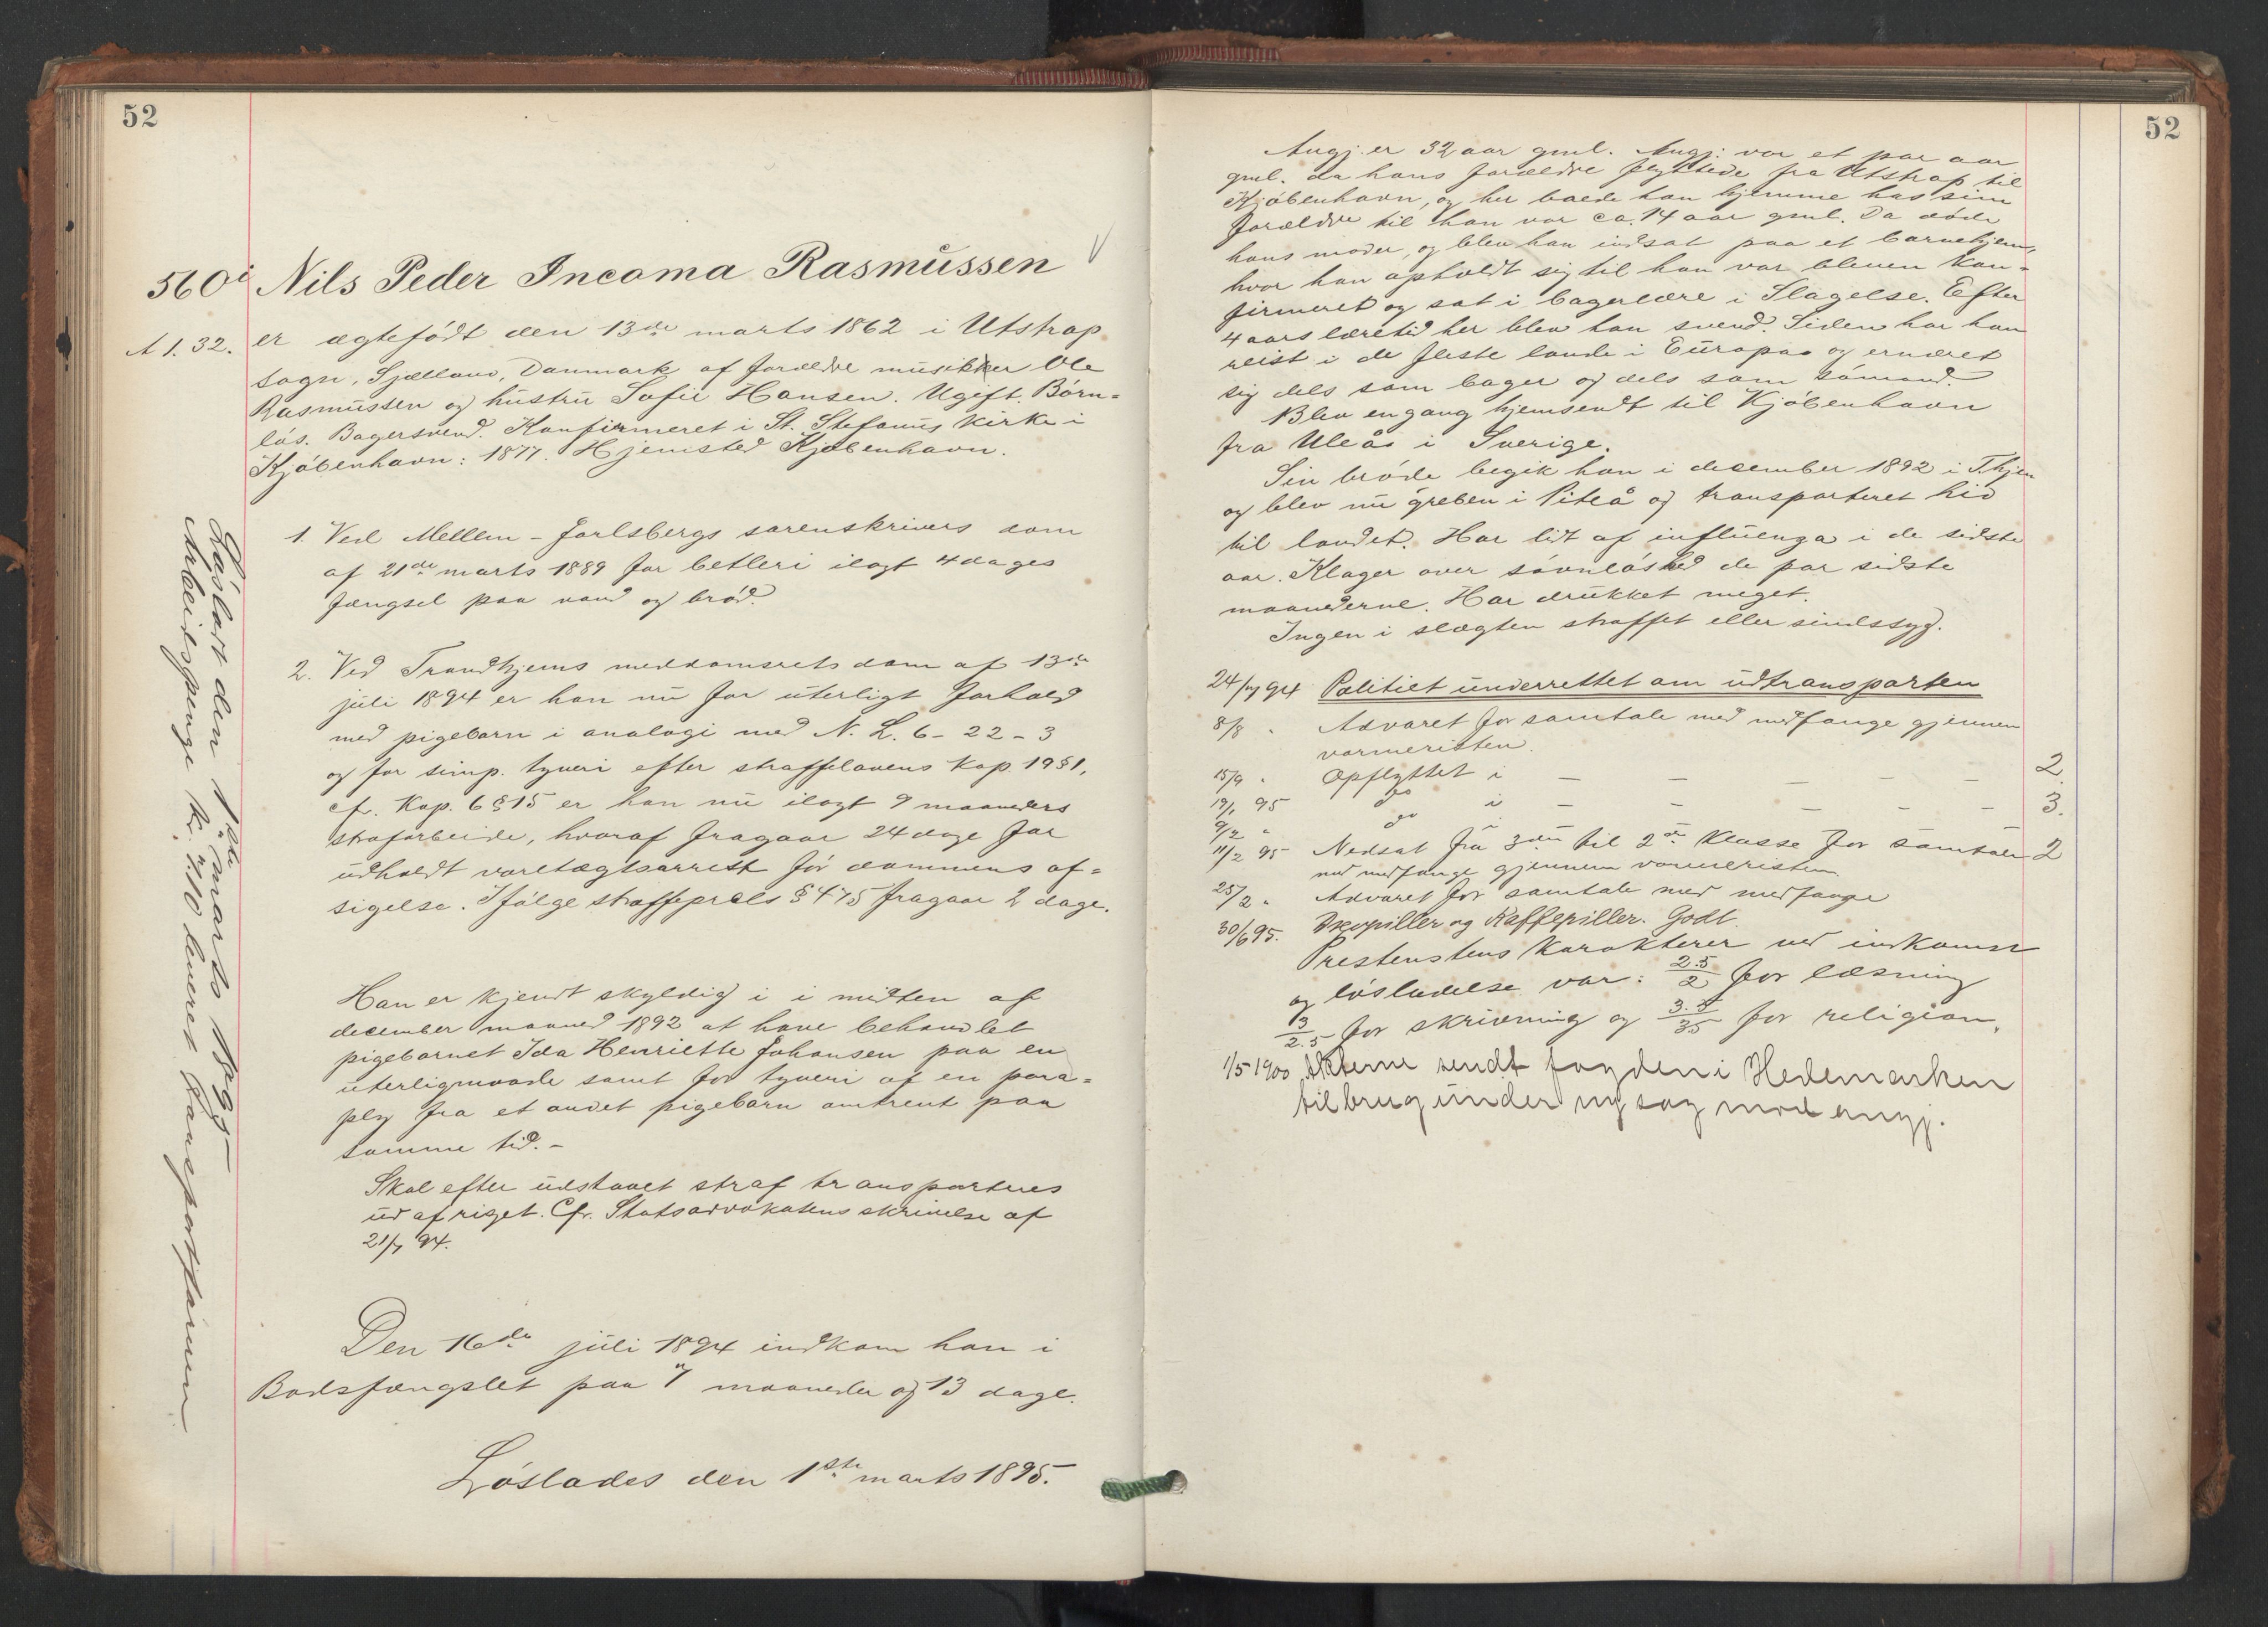 52
560i Nils Peder Incoma Rasmussen
A 1. 32. er ægtefødt den 13de marts 1862 i Utstrap
sogn, Sjælland, Danmark af forældre musikker Ole
Rasmussen og hustru Sofie Hansen. Ugift. Børn=
løs. Bagersvend. Konfirmeret i St. Stefanus Kirke i
Kjøbenhavn: 1877. Hjemsted Kjøbenhavn.
1. Ved Mellem-Jarlsbergs sorenskrivers dom
af 21de marts 1889 for betleri ilagt 4 dages
fængsel paa vand og brød.
2. Ved Trondhjems meddomsrets dom af 13de
juli 1894 er han nu for uterligt forhold
med pigebarn i analogi med N. L. 6-22-3
og for simp. tyveri efter straffelovens Kap. 19 § 1,
cf. Kap. 6 § 15 er han nu ilagt 9 maaneders
strafarbeide, hvoraf fragaar 24 dage for
udholdt varetægtsarrest før dommens af=
sigelse. Ifølge straffeprcls § 475 fragaar 2 dage.
Han er kjendt skyldig i i midten af
december maaned 1892 at have behandlet
pigebarnet Ida Henriette Johansen paa en
uterlig maade samt for tyveri af en para=
ply fra et andet pigebarn omtrent paa
samme tid.-
Skal efter udstaaet straf transporteres
ud af riget. Cfr. Statsadvokatens skrivelse af
21/7 94.
Den 16de juli 1894 indkom han i
Bodsfængslet paa 7 maaneder og 13 dage.
Løslades den 1ste marts 1895.
Løsladt den 1ste marts 1895
Arbeidspenge kr. 7.10 leveret transportføreren
52
Angj. er 32 aar gml. Angj: var et par aar
gml. da hans forældre flyttede fra Utstrap til
Kjøbenhavn, og her boede han hjemme hos sine
forældre til han var ca. 14 aar gml. Da døde
hans moder, og blev han indsat paa et barnehjem,
hvor han opholdt sig til han var bleven kon=
firmeret og sat i bagerlære i Slagelse. Efter
4 aars læretid her blev han svend. Siden har han
reist i de fleste lande i Europa og ernæret
sig dels som bager og dels som sømand.
Blev engang hjemsendt til Kjøbenhavn
fra Uleå i Sverige.
Sin brøde begik han i december 1892 i T.hjem
og blev nu greben i Piteå og transporteret hid
til landet. Har lidt af influenza i de sidste
aar. Klager over søvnløshed de par sidste
maanederne. Har drukket meget.
Ingen i slægten straffet eller sindssyg.
24/7 94 Politiet underrettet om udtransporten
8/8 " Advaret for samtale med medfange gjennem
varmeristen.
15/9 " Opflyttet i — — — — — 2.
19/1 95 do i — — — — — 3.
9/2 " do
11/2 95 Nedsat fra 3die til 2den Klasse for samtale 2
med medfange gjennem varmeristen.
25/2 " Advaret for samtale med medfange
30/6 95. og Kaffepiller. Godt.
Prestenstens Karakterer ved indkomst
og løsladelse var: 2.5/2 for læsning
3/2.5 for skrivning og 3.5/35 for religion.
1/5 1900 Akterne sendt fogden i Hedemarken
til brug under ny sag mod angj.